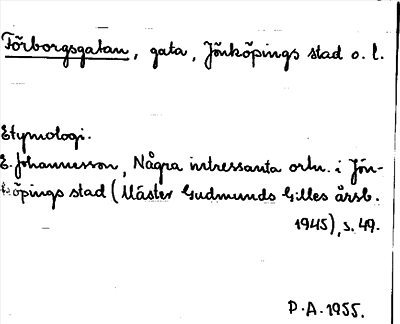 Förborgsgatan, gata, Jönköpings stad o. l.
Etymologi.
E. Johannesson, Några intressanta ortn. i Jön-
köpings stad (Mäster Gudmunds Gilles årsb.
1945), s. 49.
P.A. 1955.